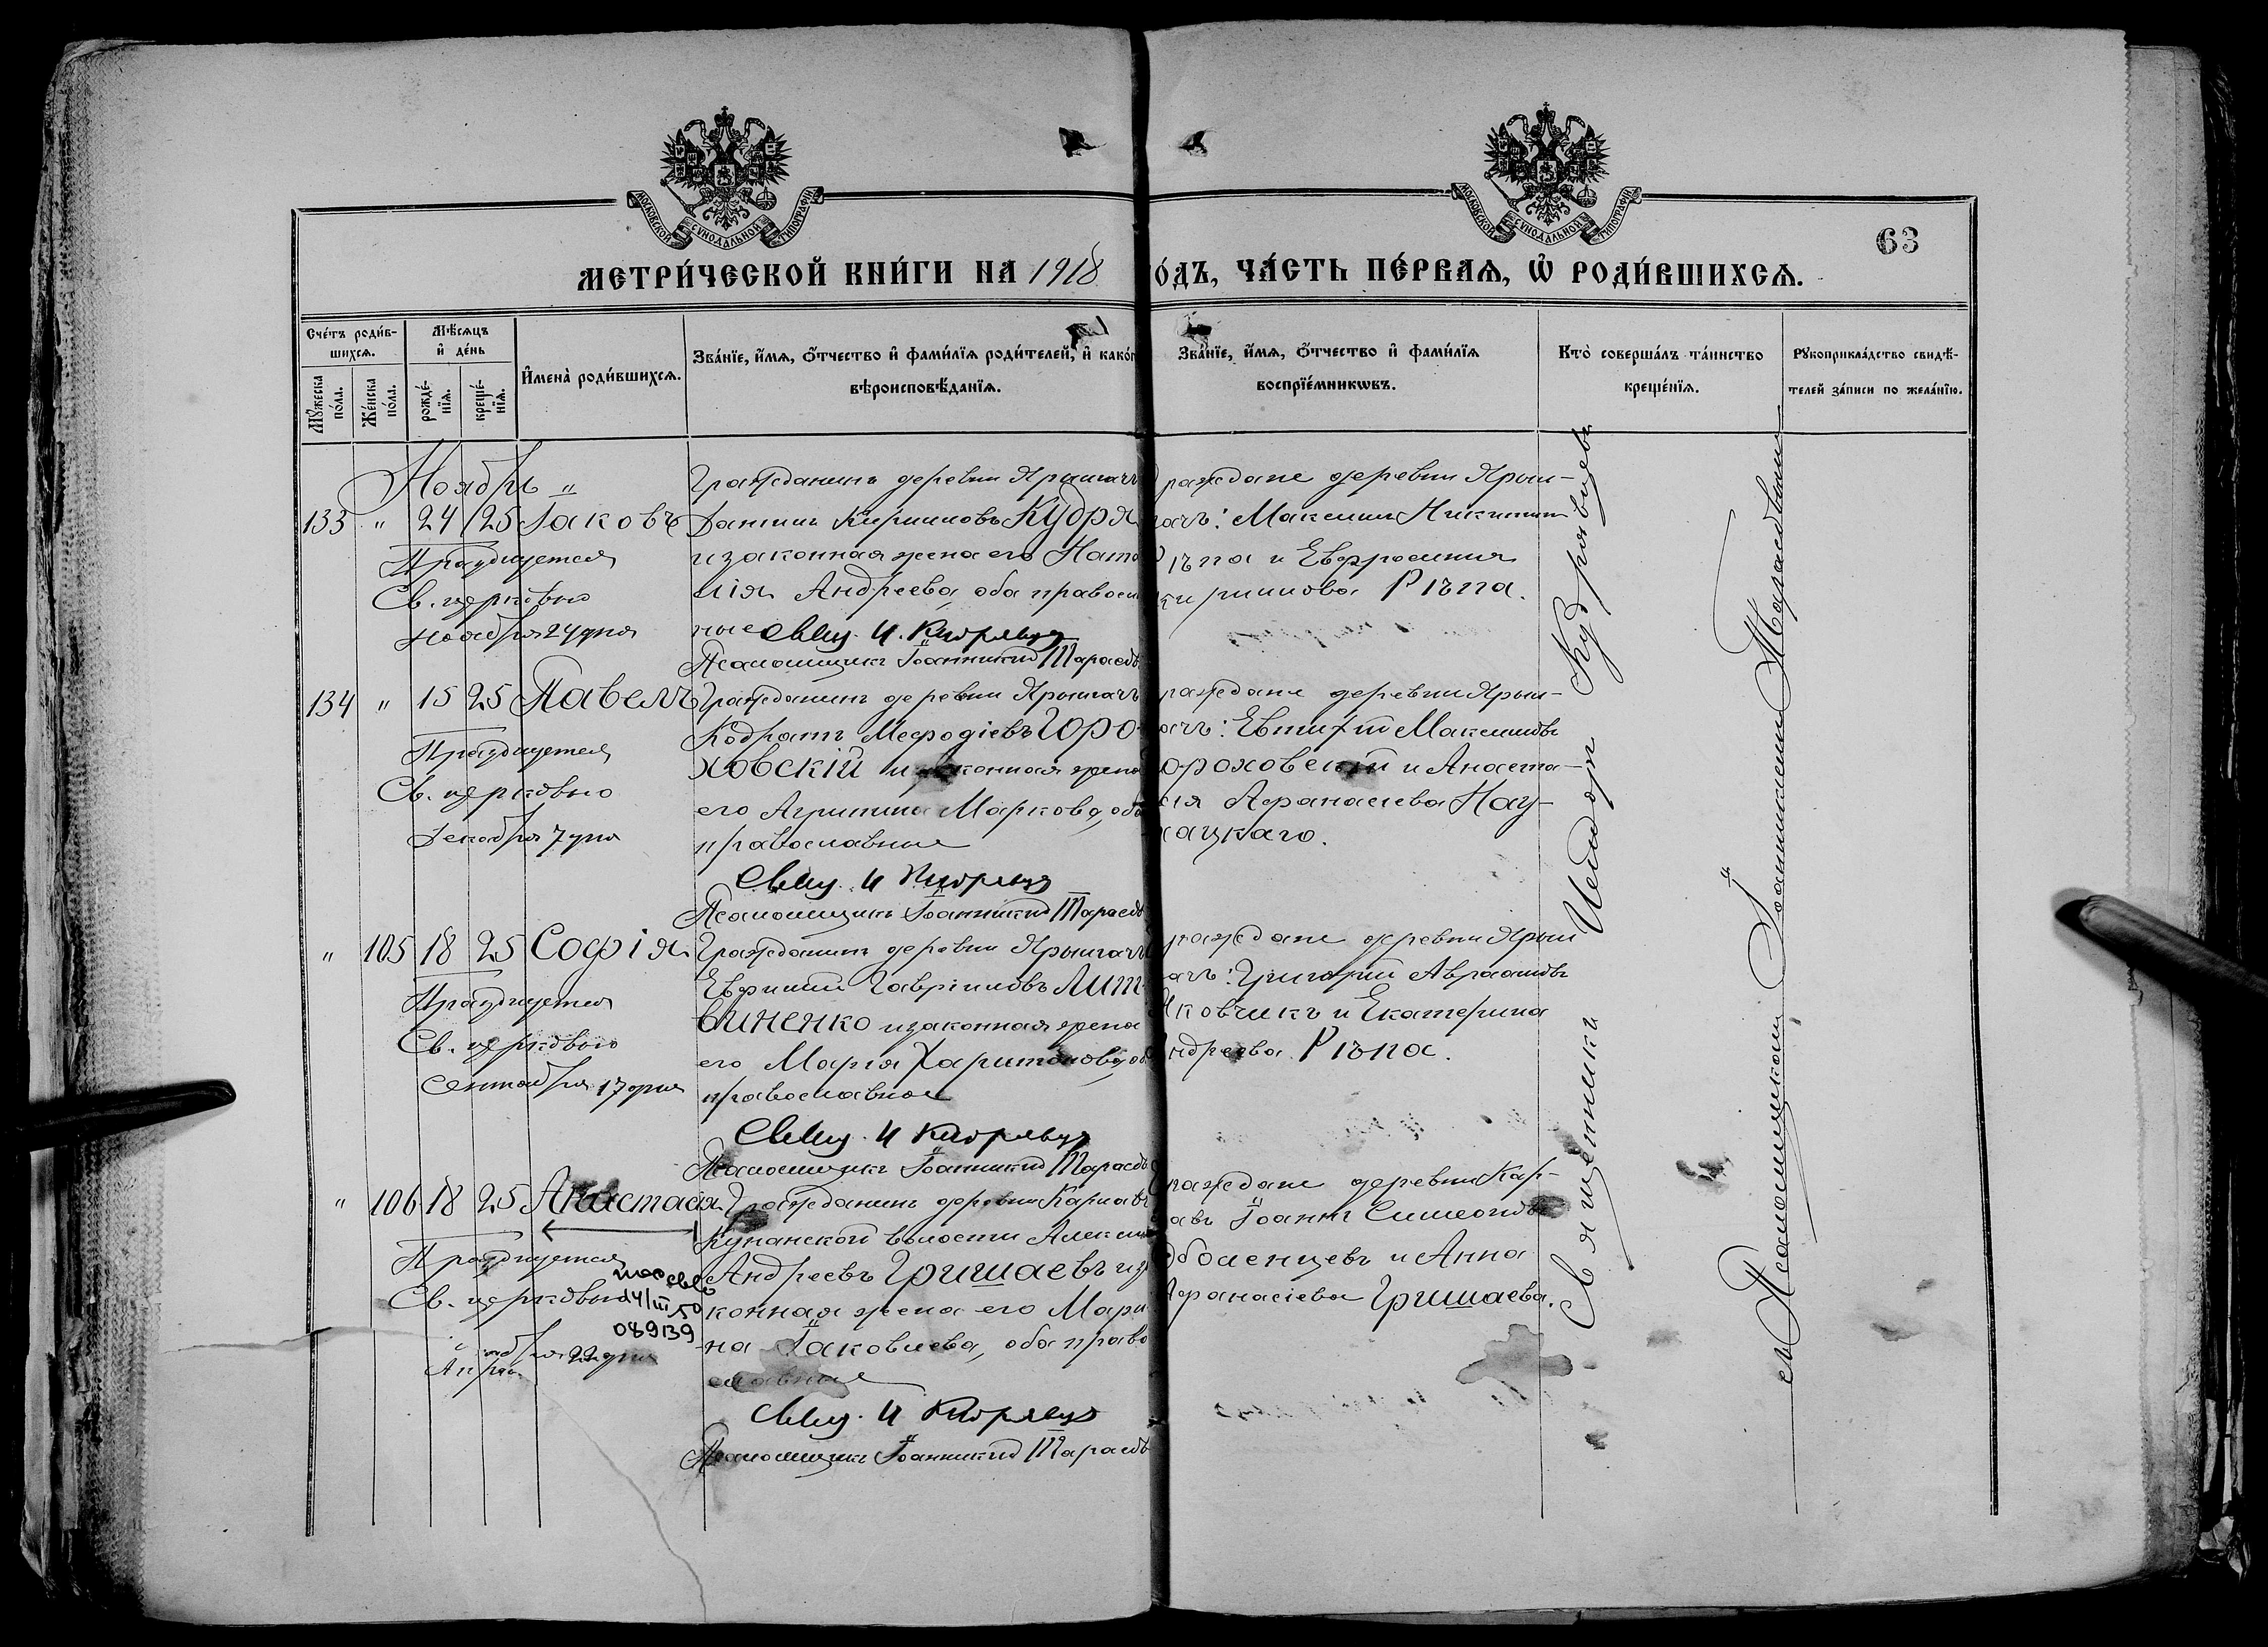 МОСКОВСКОЙ СУНОДАЛЬНОЙ ТИПОГРАФІИ
МОСКОВСКОЙ СУНОДАЛЬНОЙ ТИПОГРАФІИ
63
МЕТРИ́ЧЕСКОЙ КНИ́ГИ НА 1918
О́ДЪ, ЧА́СТЬ ПЕ́РВАѦ, Ѡ҆ РОДИ́ВШИХСѦ.
Сче́тъ роди́в-
шихсѧ.
Мꙋ́жеска по́ла.
Же́нска по́ла.
Мѣ́сѧцъ
и҆ де́нь
рожде́-
нїѧ.
креще́-
нїѧ.
И҆мена̀ роди́вшихсѧ.
Зва́нїе, и҆́мѧ, ѻ҆́тчество и҆ фами́лїѧ роди́телей, и҆ како́г
вѣроисповѣ́данїѧ.
Зва́нїе, и҆́мѧ, ѻ҆́тчество и҆ фами́лїѧ
воспрїе́мникѡвъ.
Кто̀ соверша́лъ та́инство
креще́нїѧ.
Рꙋкоприкла́дство свидѣ́-
телей за́писи по жела́нїю.
Ноябрь "
133 " 24 25 Іаковъ
Празднуется
Св. церковью
ноября 24 дня
Гражданинъ деревни Ярыигачъ
Кирилловъ Кудря
и законная жена его Ната
лія Андреева, оба правосл
ные Свящ. И. Кудрявцев
Псаломщикъ Іоанникій Тарасов
раждане деревни Ярыи-
гачъ: Максимъ Никитин
Рѣпа и Евфросиния
Кириллова Рѣпа.
134 " 15 25 Павелъ
Празднуется
Св. церковью
Декабря 7 дня
Гражданинъ деревни Ярыигачъ
Кодратъ Мефодіевъ Горо-
ховскій и законная жена
его Агрипина Маркова, оба
православные
Свящ. И Кудрявцев
Псаломщикъ Іоанникій Тарасов
раждане деревни Ярыи-
гачъ: Евтихій Максимовъ
Гороховскій и Анаста-
сія Афанасіева Нау-
ацкаго.
" 105 18 25 Софія
Празднуется
Св. церковью
Сентября 17 дня
Гражданинъ деревни Ярыигачъ
Евфимій Гавріиловъ Лит-
виненко и законная жена
его Марія Харитонова, об
православные
Свящ. И Кудрявцев
Псаломщикъ Іоанникій Тарасов
раждане деревни Ярыи
гачъ: Григорій Авраамовъ
Яковчикъ и Екатерина
Андреева Рѣпа.
" 106 18 25 Анастасія
Празднуется
Св. церковью
14/III 50
089139
22 дня
Гражданинъ деревни Карлавъ
Кунанской волости Алексій
Андреевъ Гришаевъ и за
конная жена его Мари
на Іаковлева, оба право
славные
Свящ. И Кудрявцев
Псаломщикъ Іоанникій Тарасов
раждане деревни Кар-
лавъ Іоаннъ Симеоновъ
Оболенцевъ и Анна
Афанасіева Гришаева.
Священникъ Исидоръ Кудрявцевъ
съ Псаломщикомъ Іоанникіемъ Тарасовымъ